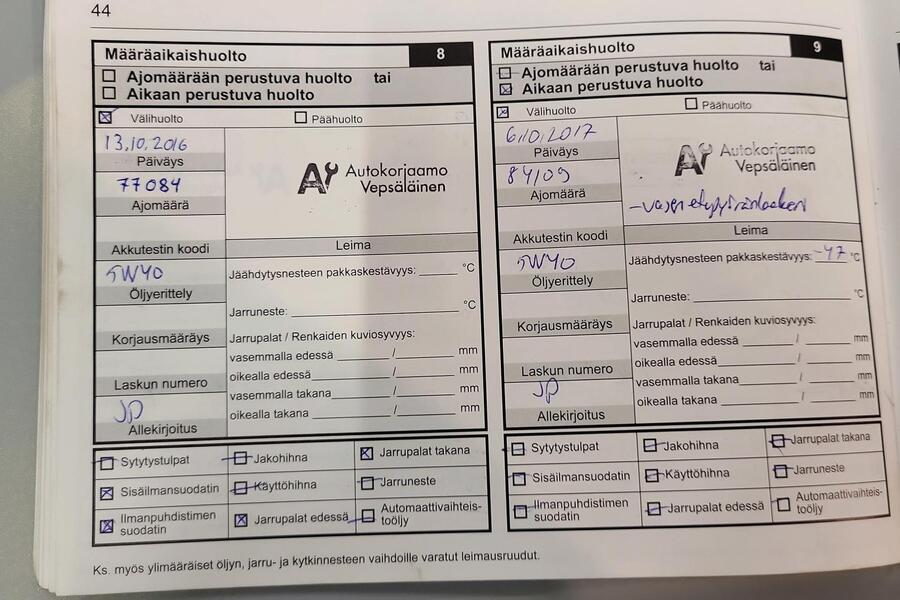 44
Määräaikaishuolto 8
Ajomäärään perustuva huolto tai
Aikaan perustuva huolto
Välihuolto Päähuolto
13.10.2016
Päiväys
77084
Ajomäärä
Autokorjaamo
Vepsäläinen
Akkutestin koodi
Leima
5W40
Öljyerittely
Jäähdytysnesteen pakkaskestävyys: °C
Jarruneste: °C
Korjausmääräys
Jarrupalat / Renkaiden kuviosyvyys:
vasemmalla edessä / mm
oikealla edessä / mm
Laskun numero
vasemmalla takana / mm
oikealla takana / mm
JP
Allekirjoitus
Sytytystulpat Jakohihna Jarrupalat takana
Sisäilmansuodatin Käyttöhihna Jarruneste
Ilmanpuhdistimen
suodatin
Jarrupalat edessä
Automaattivaihteis-
toöljy
Määräaikaishuolto 9
Ajomäärään perustuva huolto tai
Aikaan perustuva huolto
Välihuolto Päähuolto
6.10.2017
Päiväys
84109
Ajomäärä
Autokorjaamo
Vepsäläinen
-vasen etupyöränlaakeri
Akkutestin koodi
Leima
5W40
Öljyerittely
Jäähdytysnesteen pakkaskestävyys: -47 °C
Jarruneste: °C
Korjausmääräys
Jarrupalat / Renkaiden kuviosyvyys:
vasemmalla edessä / mm
oikealla edessä / mm
Laskun numero
vasemmalla takana / mm
oikealla takana / mm
JP
Allekirjoitus
Sytytystulpat Jakohihna Jarrupalat takana
Sisäilmansuodatin Käyttöhihna Jarruneste
Ilmanpuhdistimen
suodatin
Jarrupalat edessä
Automaattivaihteis-
toöljy
Ks. myös ylimääräiset öljyn, jarru- ja kytkinnesteen vaihdoille varatut leimausruudut.